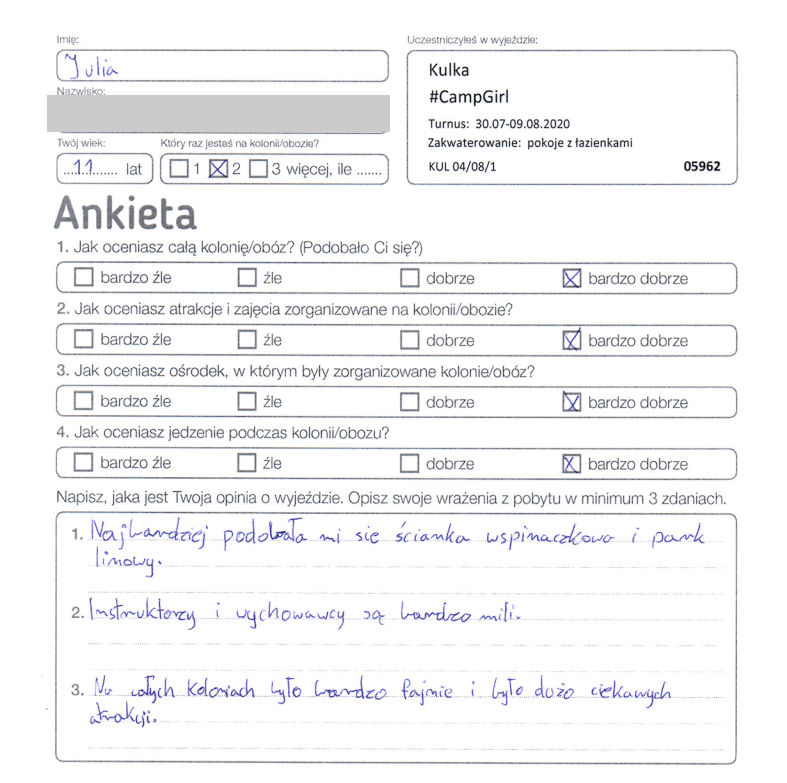 Imię:
Julia
Nazwisko:
Twój wiek:
Który raz jesteś na kolonii/obozie?
...11...... lat
1 2 3 więcej, ile .......
Uczestniczyłeś w wyjeździe:
Kulka
#CampGirl
Turnus: 30.07-09.08.2020
Zakwaterowanie: pokoje z łazienkami
KUL 04/08/1 05962
Ankieta
1. Jak oceniasz całą kolonię/obóz? (Podobało Ci się?)
bardzo źle źle dobrze bardzo dobrze
2. Jak oceniasz atrakcje i zajęcia zorganizowane na kolonii/obozie?
bardzo źle źle dobrze bardzo dobrze
3. Jak oceniasz ośrodek, w którym były zorganizowane kolonie/obóz?
bardzo źle źle dobrze bardzo dobrze
4. Jak oceniasz jedzenie podczas kolonii/obozu?
bardzo źle źle dobrze bardzo dobrze
Napisz, jaka jest Twoja opinia o wyjeździe. Opisz swoje wrażenia z pobytu w minimum 3 zdaniach.
1. Najbardziej podobała mi się ścianka wspinaczkowa i park
linowy.
2. Instruktorzy i wychowawcy są bardzo mili.
3. Na całych koloniach było bardzo fajnie i było dużo ciekawych
atrakcji.